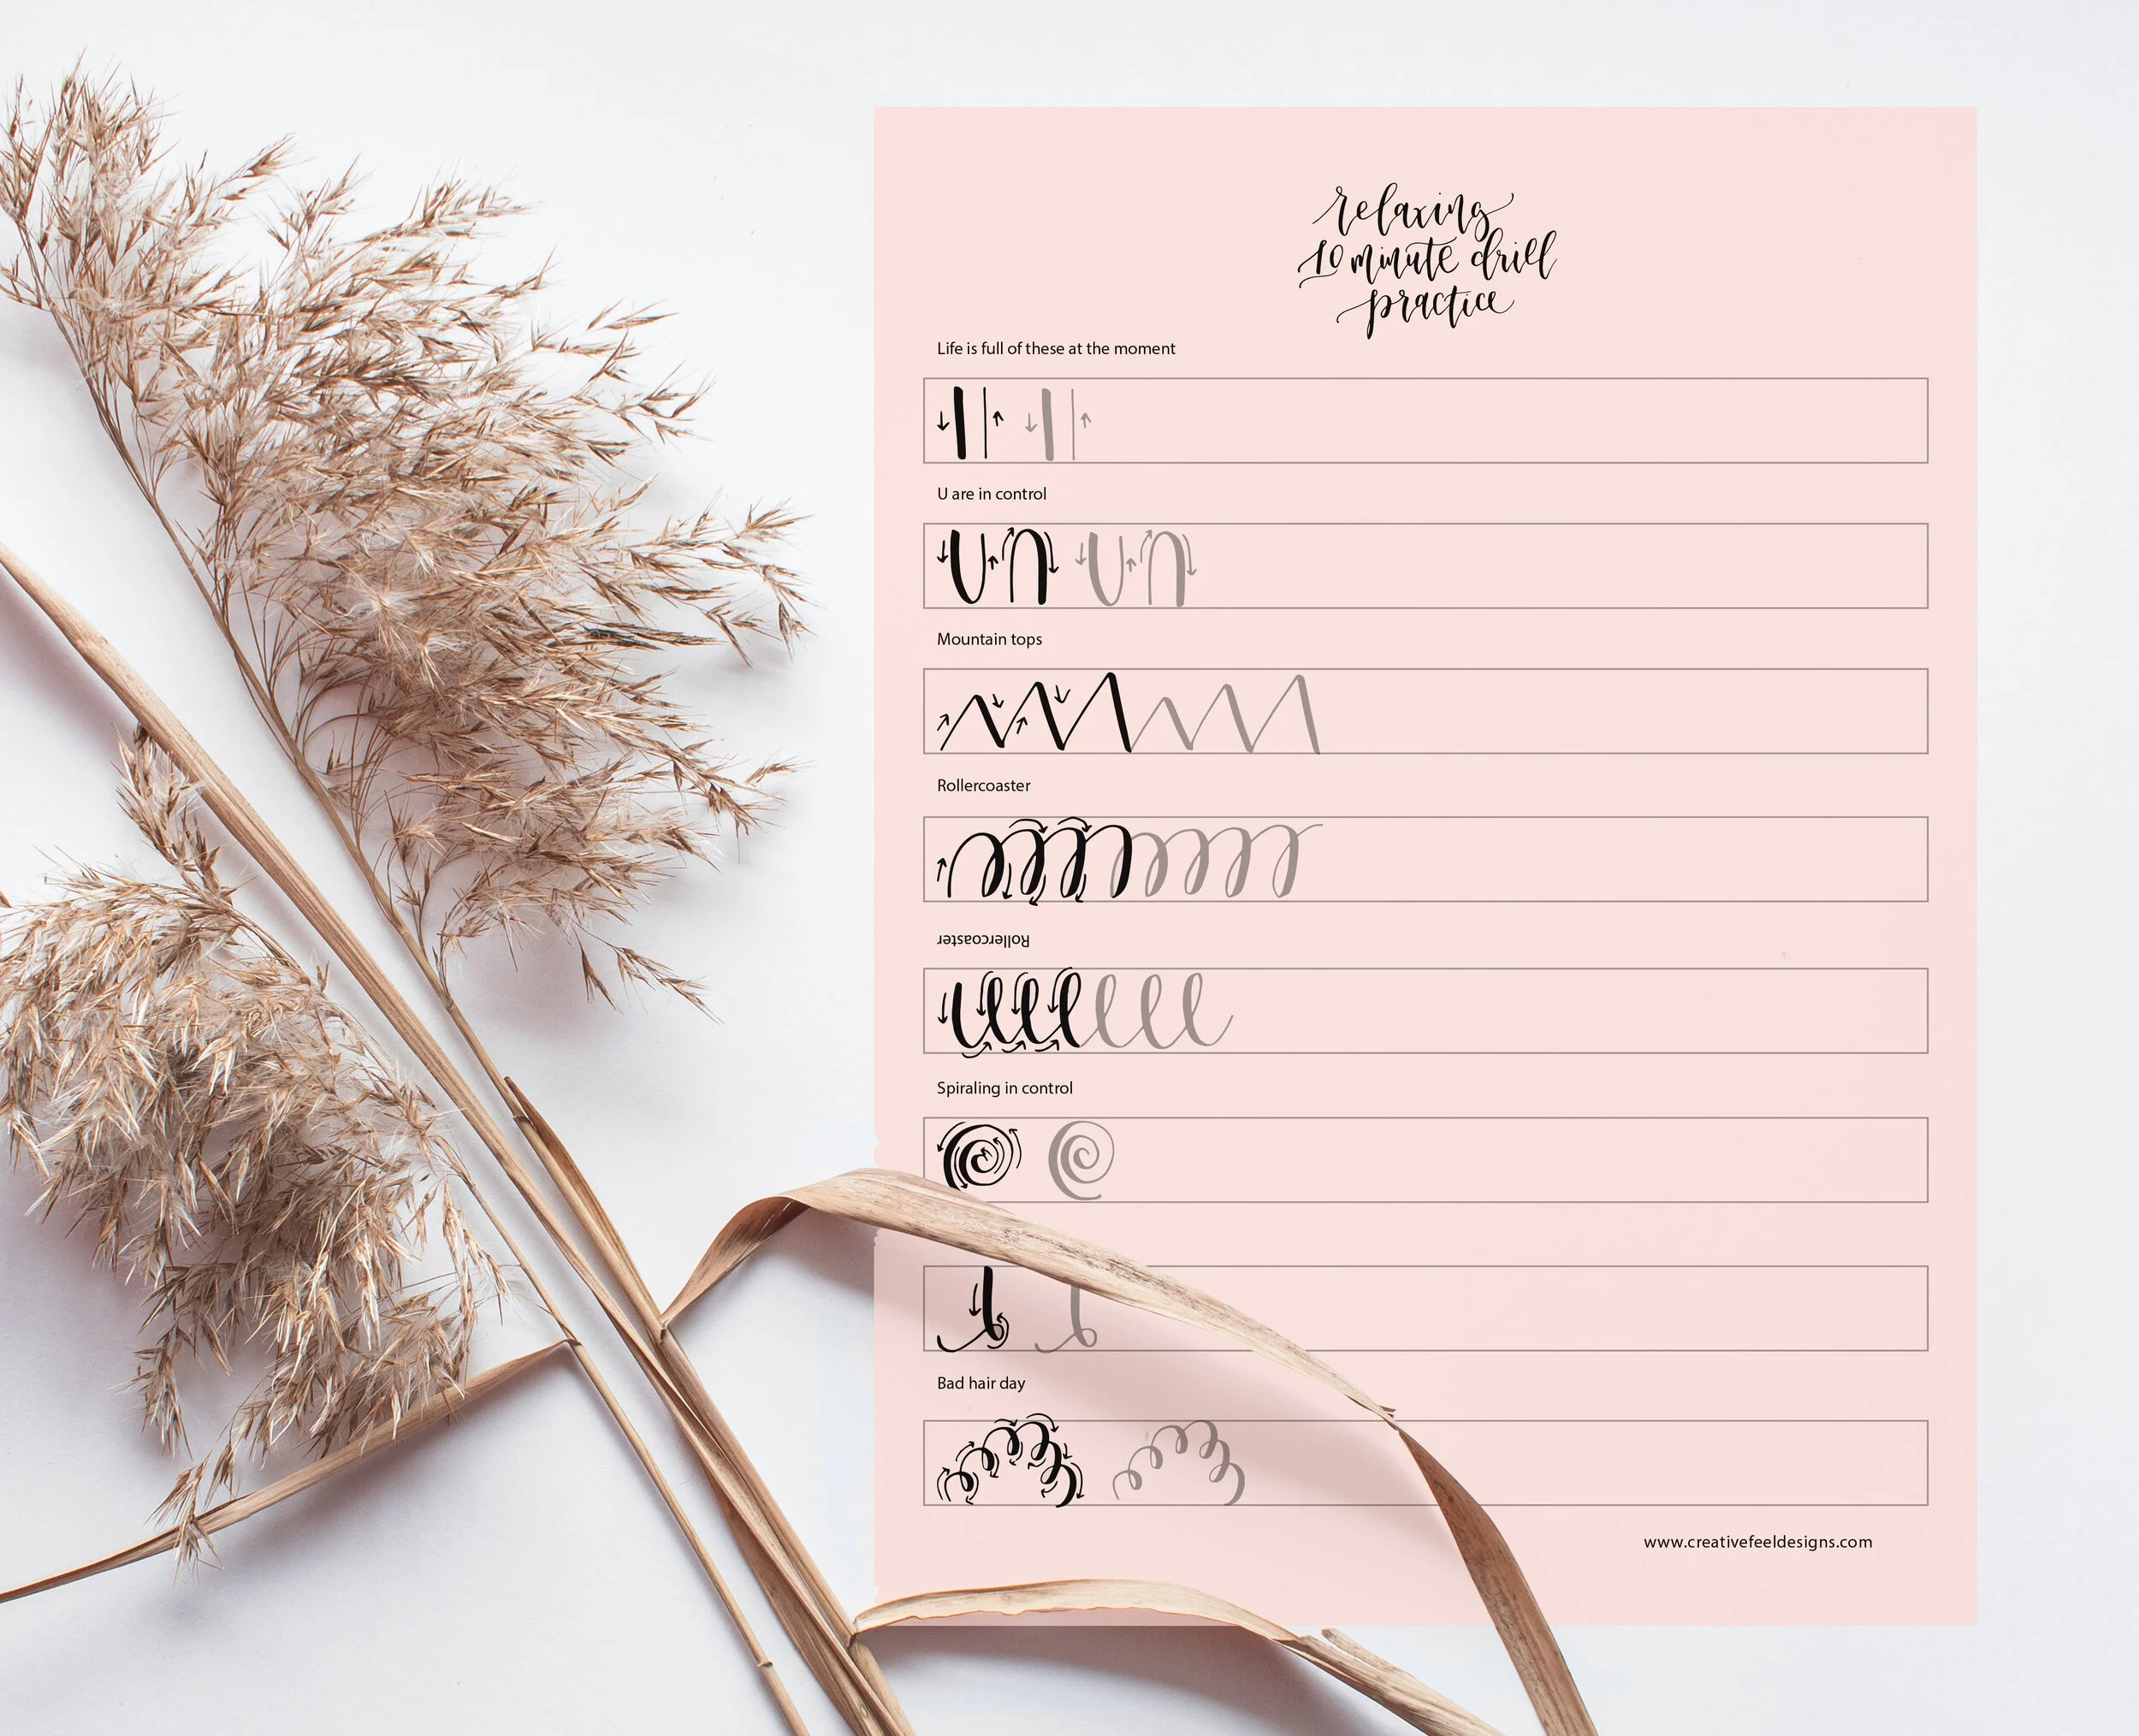 relaxing
10 minute drill
practice
Life is full of these at the moment
U are in control
Mountain tops
Rollercoaster
Rollercoaster
Spiraling in control
Bad hair day
www.creativefeeldesigns.com